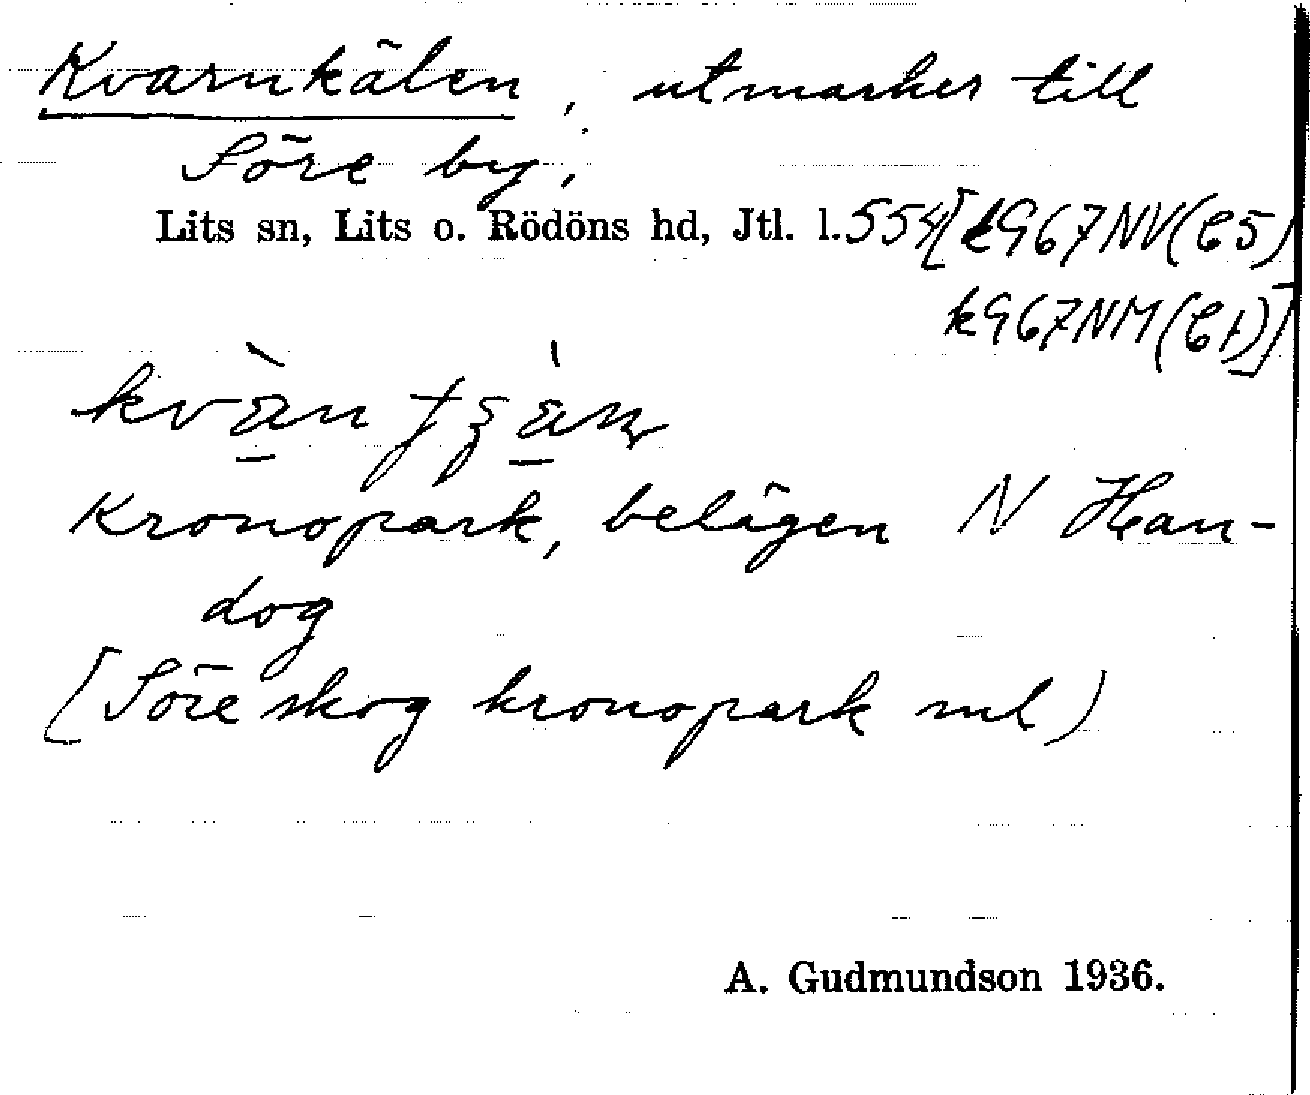 Kvarnkälen, utmarker till
Söre by,
Lits sn, Lits o. Rödöns hd, Jtl. l. 554 [k967NV(C5)
k967NM(C1)]
Kronopark, belägen N Han-
dog
[Söre skog kronopark ml)
A. Gudmundson 1936.